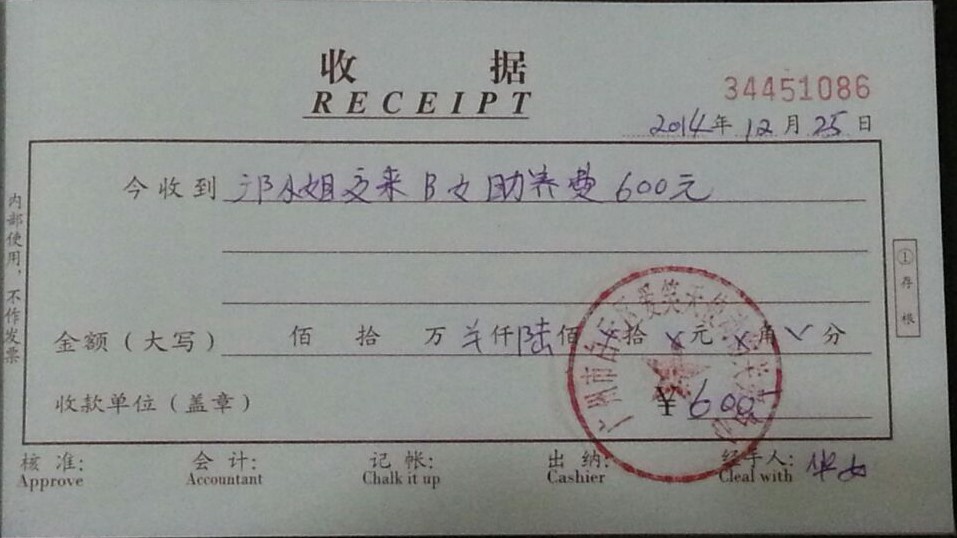 收 据
RECEIPT
34451086
2014年12月25日
今收到 邝小姐交来 B女助养费 600元
金额（大写） 佰 拾 万 仟陆佰 拾 元 角 分
¥600
收款单位（盖章）
内部使用，不作发票
①存根
核准: 会计: 记帐: 出纳: 经手人:
Approve Accountant Chalk it up Cashier Cleal with